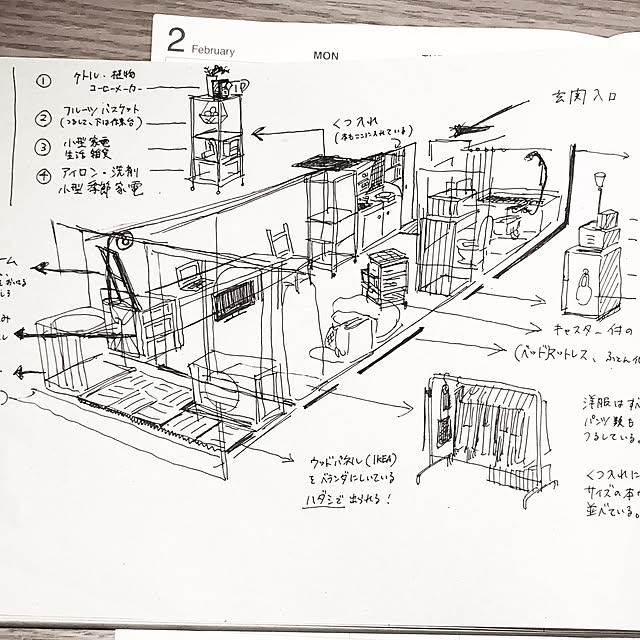 2 February
MON
① ケトル・植物
コーヒーメーカー
② フルーツバスケット
(つるして、下は作業台)
③ 小型家電
生活雑貨
④ アイロン・洗剤
小型季節家電
くつ入れ
(本もここに入れている)
玄関入口
キャスター付の
(ベッドマットレス、ふとん
ウッドパネル(IKEA)
をベランダにしいている
ハダシで出られる!
洋服は
パンツ類も
つるしている。
くつ入れに
サイズの本
並べている。